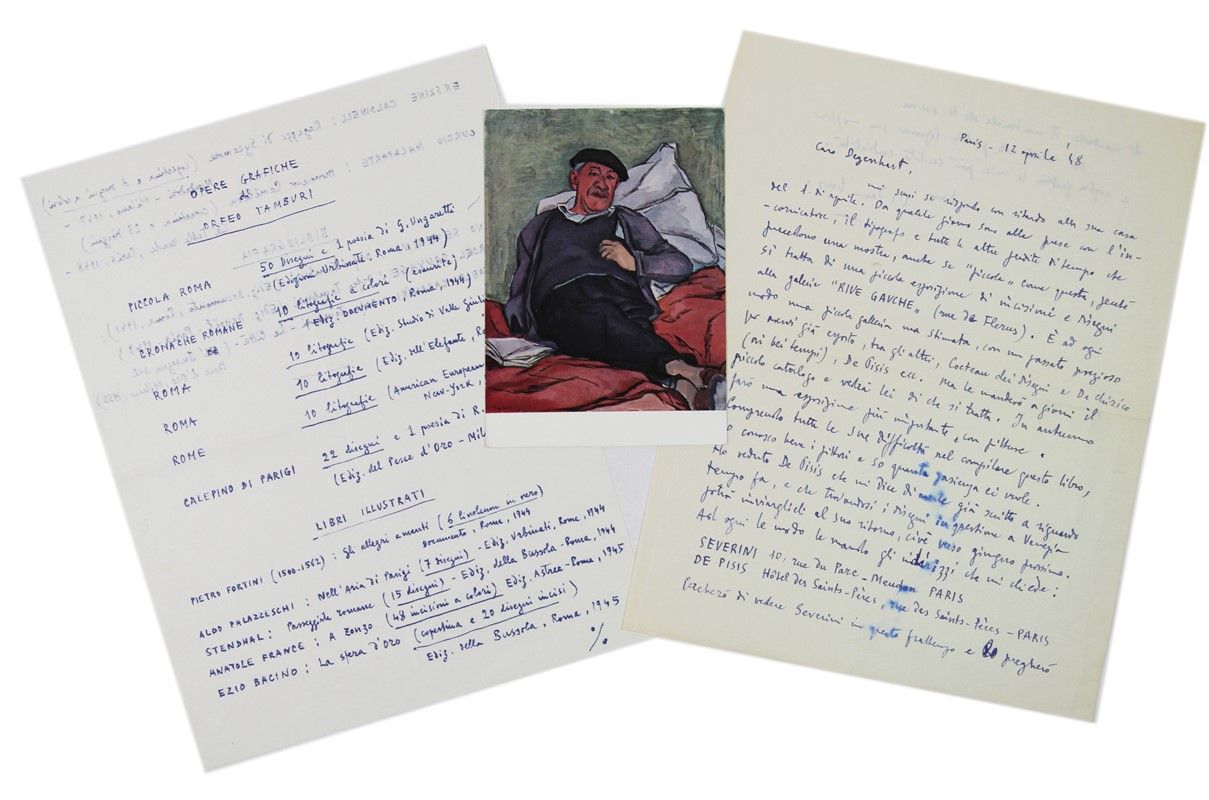 OPERE GRAFICHE
di
ORFEO TAMBURI
PICCOLA ROMA 50 Disegni e 1 poesia di G. Ungaretti
(Edizioni Urbinate: Roma, 1944)
CRONACHE ROMANE 10 litografie a colori (esaurite)
(Ediz. DOCUMENTO, Roma, 1944)
ROMA 10 litografie (Ediz. Studio di Valle Giulia
ROMA 10 litografie (Ediz. dell'Elefante, Ro
ROME 10 litografie (American European
New-York,
CALEPINO DI PARIGI 22 disegni e 1 poesia di R.
(Ediz. del Pesce d'Oro - Mil
LIBRI ILLUSTRATI
PIETRO FORTINI (1500-1562): Gli allegri amanti (6 linoleum in nero)
Documento, Roma, 1944
ALDO PALAZZESCHI: Nell'Aria di Parigi (7 disegni) - Ediz. Urbinati, Roma, 1944
STENDHAL: Passeggiate romane (15 disegni) - Ediz. della Bussola - Roma, 1944
ANATOLE FRANCE: A zonzo (48 incisioni a colori) Ediz. Astrea - Roma, 1945
EZIO BACINO: La sfera d'Oro (copertina e 20 disegni incisi)
Ediz. della Bussola, Roma, 1945
%
ERSKINE CALDWELL: Ragazzo di Sycamore
CURZIO MALAPARTE:
Paris - 12 aprile '48
Caro Degenhart,
mi scusi se rispondo con ritardo alla sua
del 1 di aprile. Da qualche giorno sono alle prese con l'in-
-corniciatore, il tipografo e tutte le altre perdite di tempo che
precedono una mostra, anche se "piccola" come questa, perché
si tratta di una piccola esposizione di incisioni e disegni
alla galerie "RIVE GAUCHE" (rue de Fleurus). È ad ogni
modo una piccola galleria ma stimata, con un passato prezioso
per avervi già esposto, tra gli altri, Cocteau dei disegni e De Chirico
(ai bei tempi), De Pisis ecc. Ma le manderò a giorni il
piccolo catalogo e vedrà lei di che si tratta. In autunno
farò una esposizione più importante, con pitture.
Comprendo tutte le sue difficoltà nel compilare questo libro,
conosco bene i pittori e so quanta pazienza ci vuole.
Ho veduto De Pisis che mi dice di averle già scritto a riguardo
tempo fa, e che trovandosi i disegni in questione a Venezia
potrà inviarglieli al suo ritorno, cioè verso giugno prossimo.
Ad ogni modo le mando gli indirizzi che mi chiede:
SEVERINI 10, rue du Parc - Meudon PARIS
DE PISIS Hôtel des Saints-Pères, rue des Saints-Pères - PARIS
Cercherò di vedere Severini in questo frattempo e lo pregherò